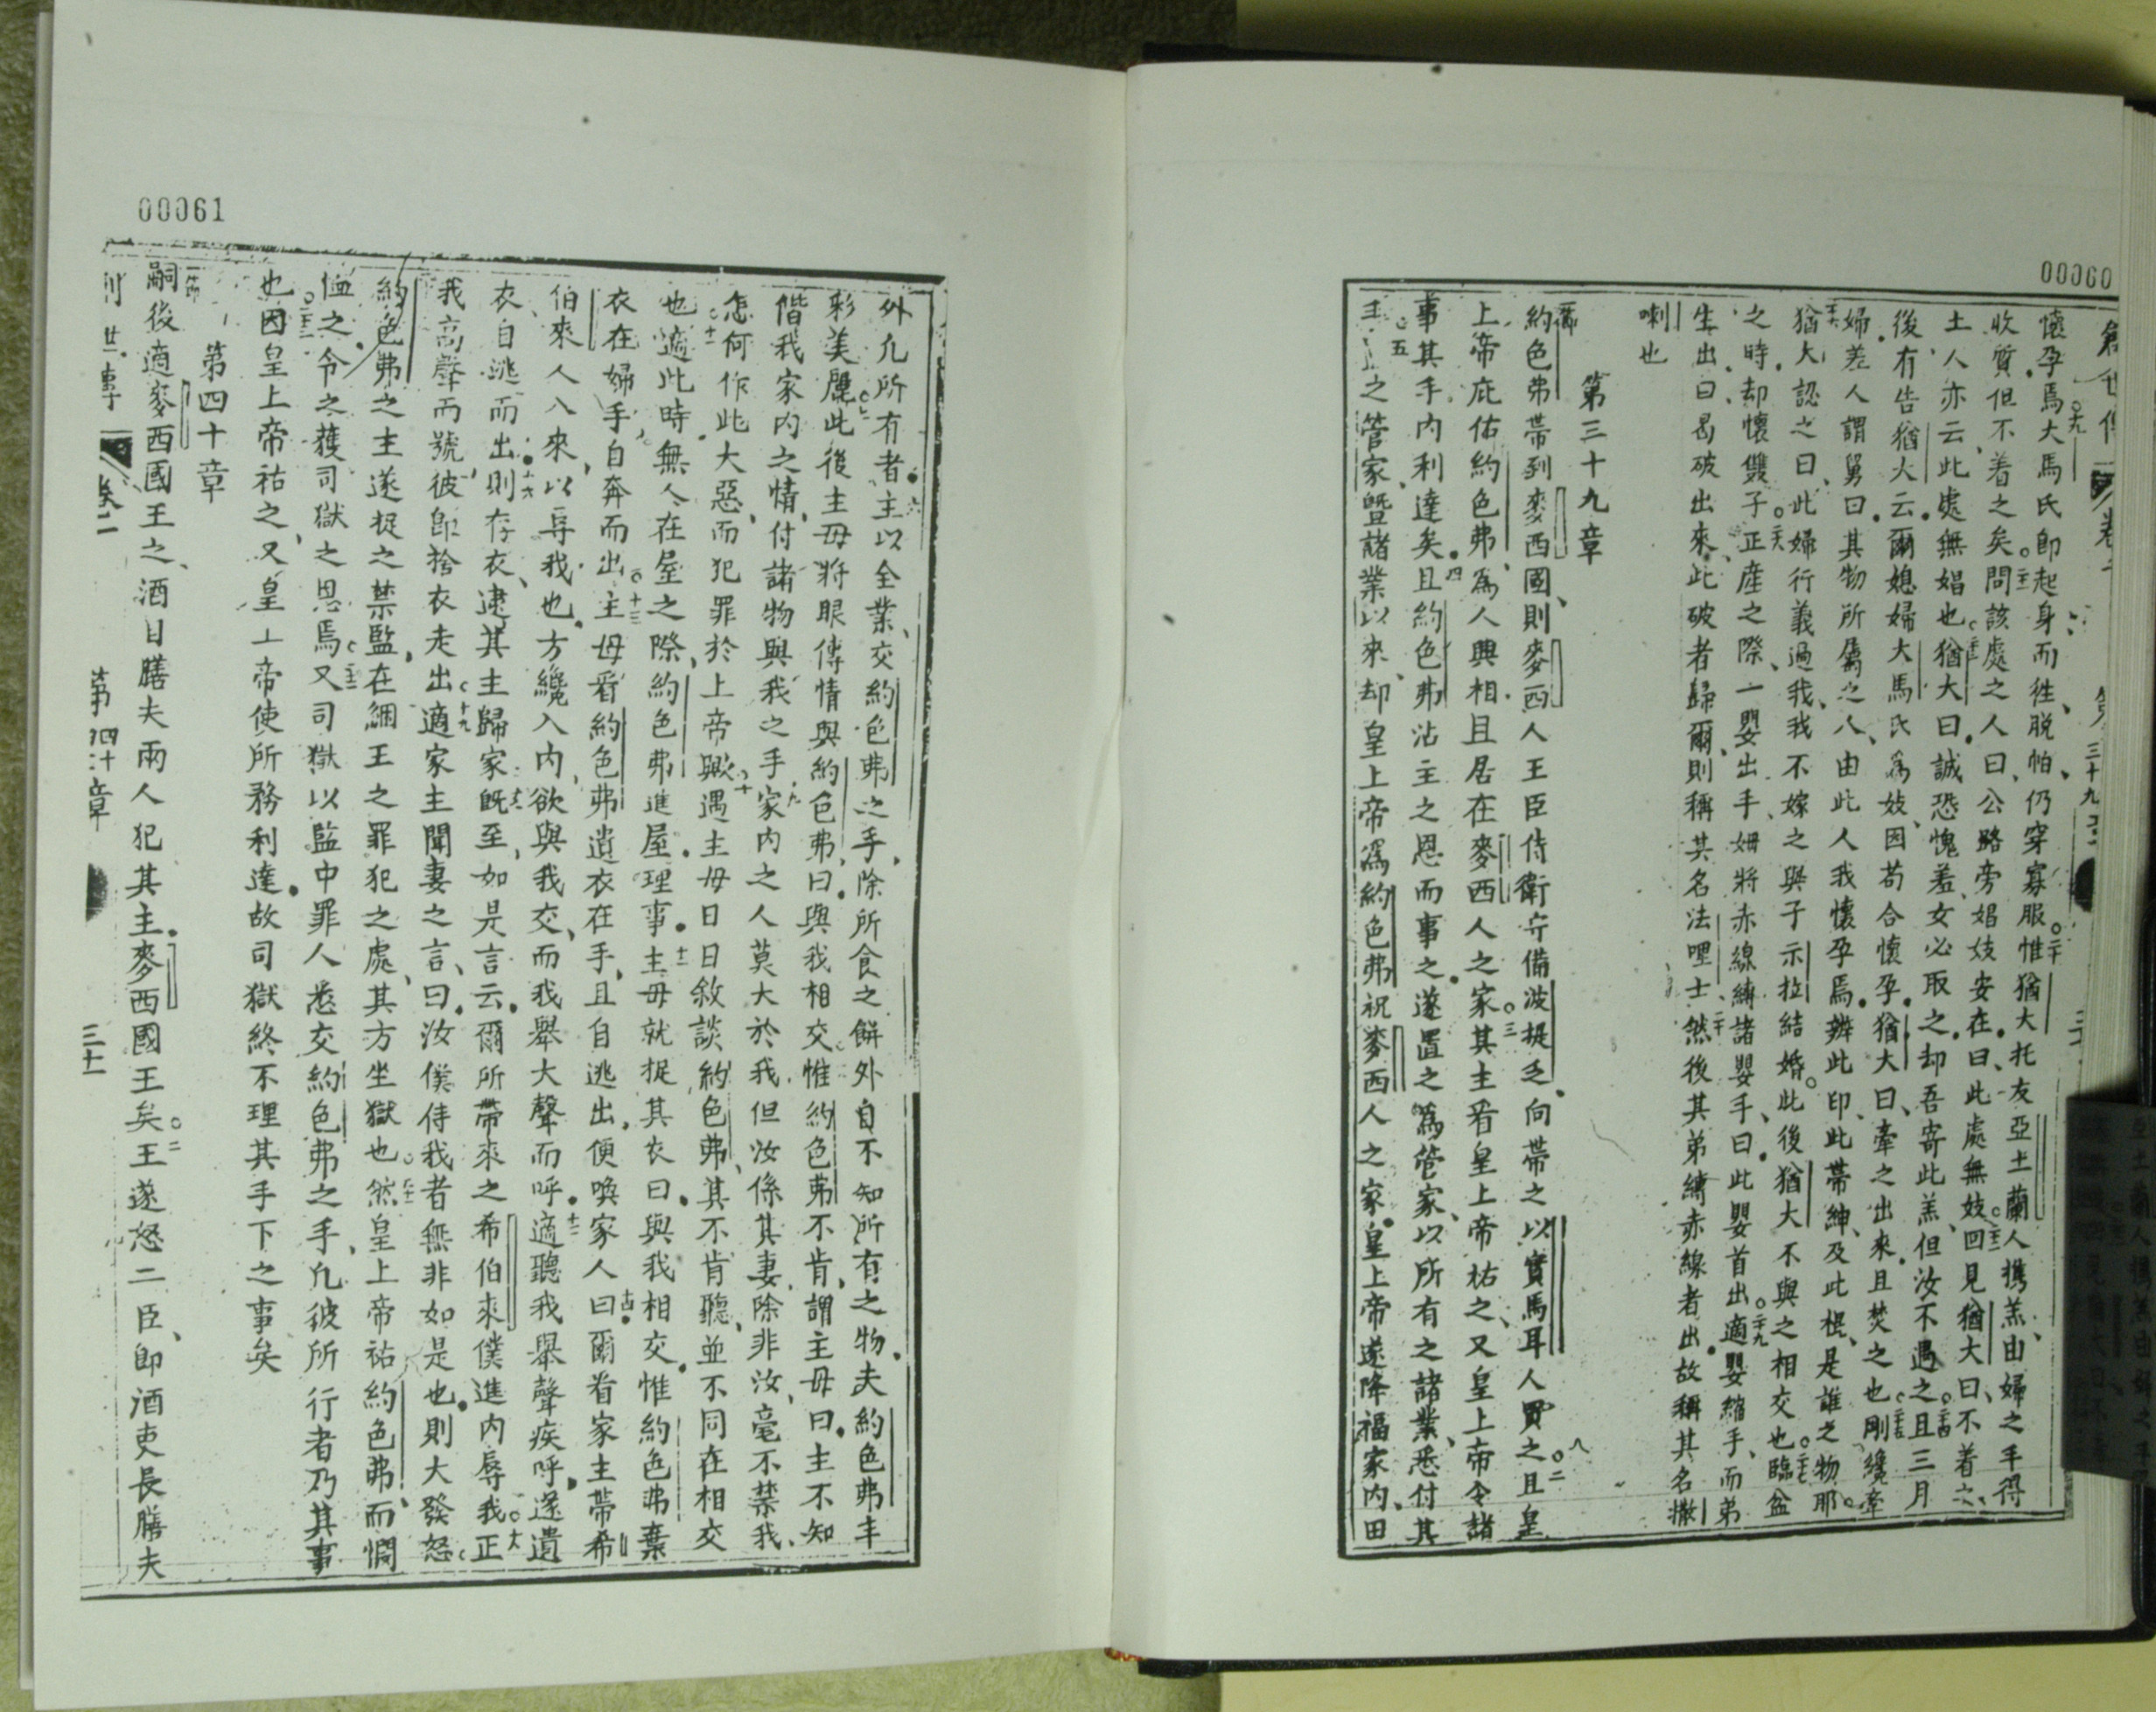 00060
懷孕焉大馬氏即起身而徃脱帕仍穿寡服惟猶大托友亞土蘭人携羔由婦之手得
收質但不着之矣問該處之人曰公路旁娼妓安在曰此處無妓回見猶大曰不着之
土人亦云此處無娼也猶大曰誠恐愧羞女必取之却吾寄此羔但汝不遇之且三月
後有告猶大云爾媳婦大馬氏爲妓因苟合懷孕猶大曰牽之出來且焚之也剛纔牽
婦差人謂舅曰其物所屬之人由此人我懷孕焉辨此印此帶紳及此棍是誰之物耶
猶大認之曰此婦行義過我我不嫁之與子示拉結婚此後猶大不與之相交也臨盆
之時却懷雙子正產之際一嬰出手姆將赤線縛諸嬰手曰此嬰首出適嬰縮手而弟
生出曰曷破出來此破者歸爾則稱其名法哩士然後其弟縛赤線者出故稱其名撒
喇也
第三十九章
約色弗帶到麥西國則麥西人王臣侍衛守備波提乏向帶之以實馬耳人買之且皇
上帝庇佑約色弗爲人興相且居在麥西人之家其主看皇上帝祐之又皇上帝令諸
事其手內利達矣且約色弗沾主之恩而事之遂置之爲管家以所有之諸業悉付其
手之管家曁諸業以來却皇上帝爲約色弗祝麥西人之家皇上帝遂降福家內田
00061
外凡所有者主以全業交約色弗之手除所食之餅外自不知所有之物夫約色弗丰
彩美麗此後主母將眼傳情與約色弗曰與我相交惟約色弗不肯謂主母曰主不知
偕我家內之情付諸物與我之手家內之人莫大於我但汝係其妻除非汝毫不禁我
怎何作此大惡而犯罪於上帝歟遇主母日日敘談約色弗其不肯聽並不同在相交
也適此時無人在屋之際約色弗進屋理事主母就捉其衣曰與我相交惟約色弗棄
衣在婦手自奔而出主母看約色弗遺衣在手且自逃出便喚家人曰爾看家主帶希
伯來人入來以辱我也方纔入內欲與我交而我舉大聲而呼適聽我舉聲疾呼遂遺
衣自逃而出則存衣逮其主歸家旣至如是言云爾所帶來之希伯來僕進內辱我正
我高聲而號彼卽捨衣走出適家主聞妻之言曰汝僕侍我者無非如是也則大發怒
約色弗之主遂捉之禁監在綑王之罪犯之處其方坐獄也然皇上帝祐約色弗而憫
恤之令之獲司獄之恩焉又司獄以監中罪人悉交約色弗之手凡彼所行者乃其事
也因皇上帝祐之又皇上帝使所務利達故司獄終不理其手下之事矣
第四十章
嗣後適麥西國王之酒目膳夫兩人犯其主麥西國王矣王遂怒二臣卽酒吏長膳夫
卷二 第四十章 三十一